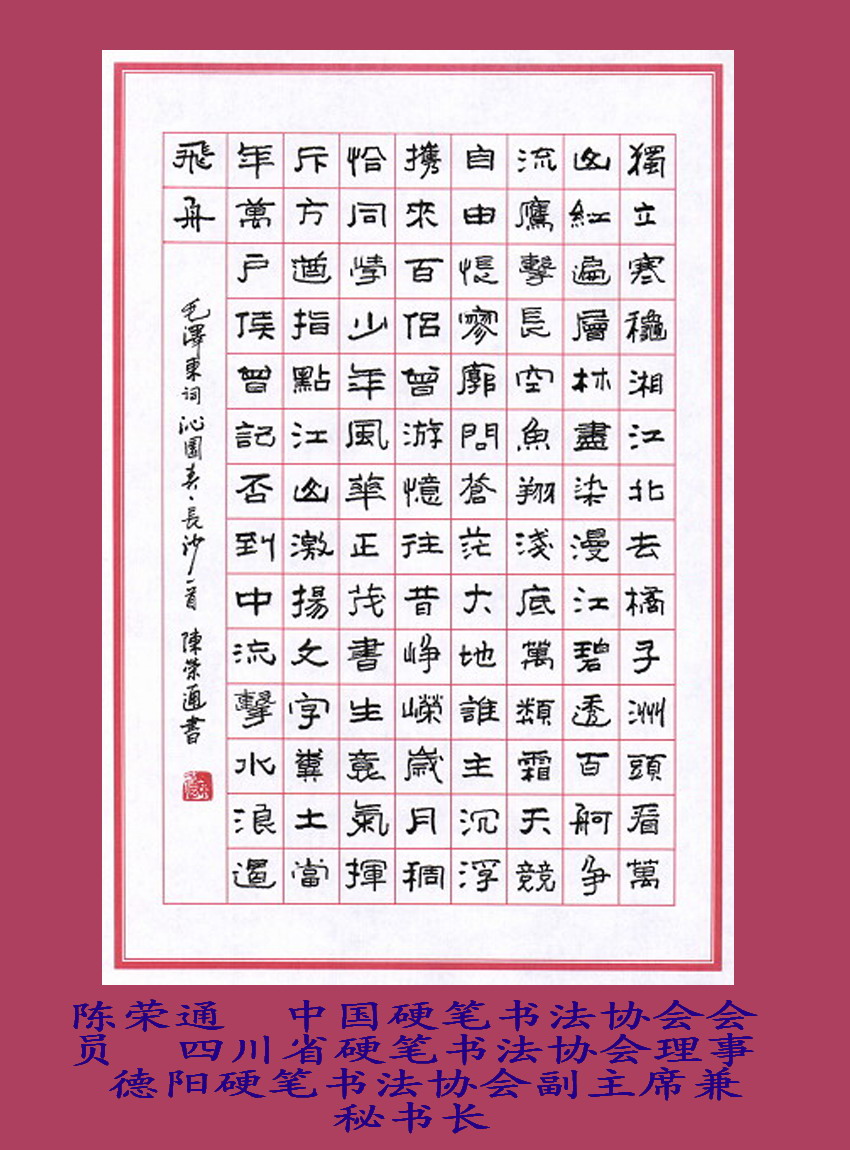 獨立寒穐湘江北去橘子洲頭看萬
山紅遍層林盡染漫江碧透百舸爭
流鷹擊長空魚翔淺底萬類霜天競
自由悵寥廓問蒼茫大地誰主沉浮
携來百侶曾游憶往昔崢嶸歲月稠
恰同學少年風華正茂書生意氣揮
斥方遒指點江山激揚文字糞土當
年萬戶侯曾記否到中流擊水浪遏
飛舟
毛澤東词沁園春·長沙一首 陳榮通書
陈荣通 中国硬笔书法协会会
员 四川省硬笔书法协会理事
德阳硬笔书法协会副主席兼
秘书长